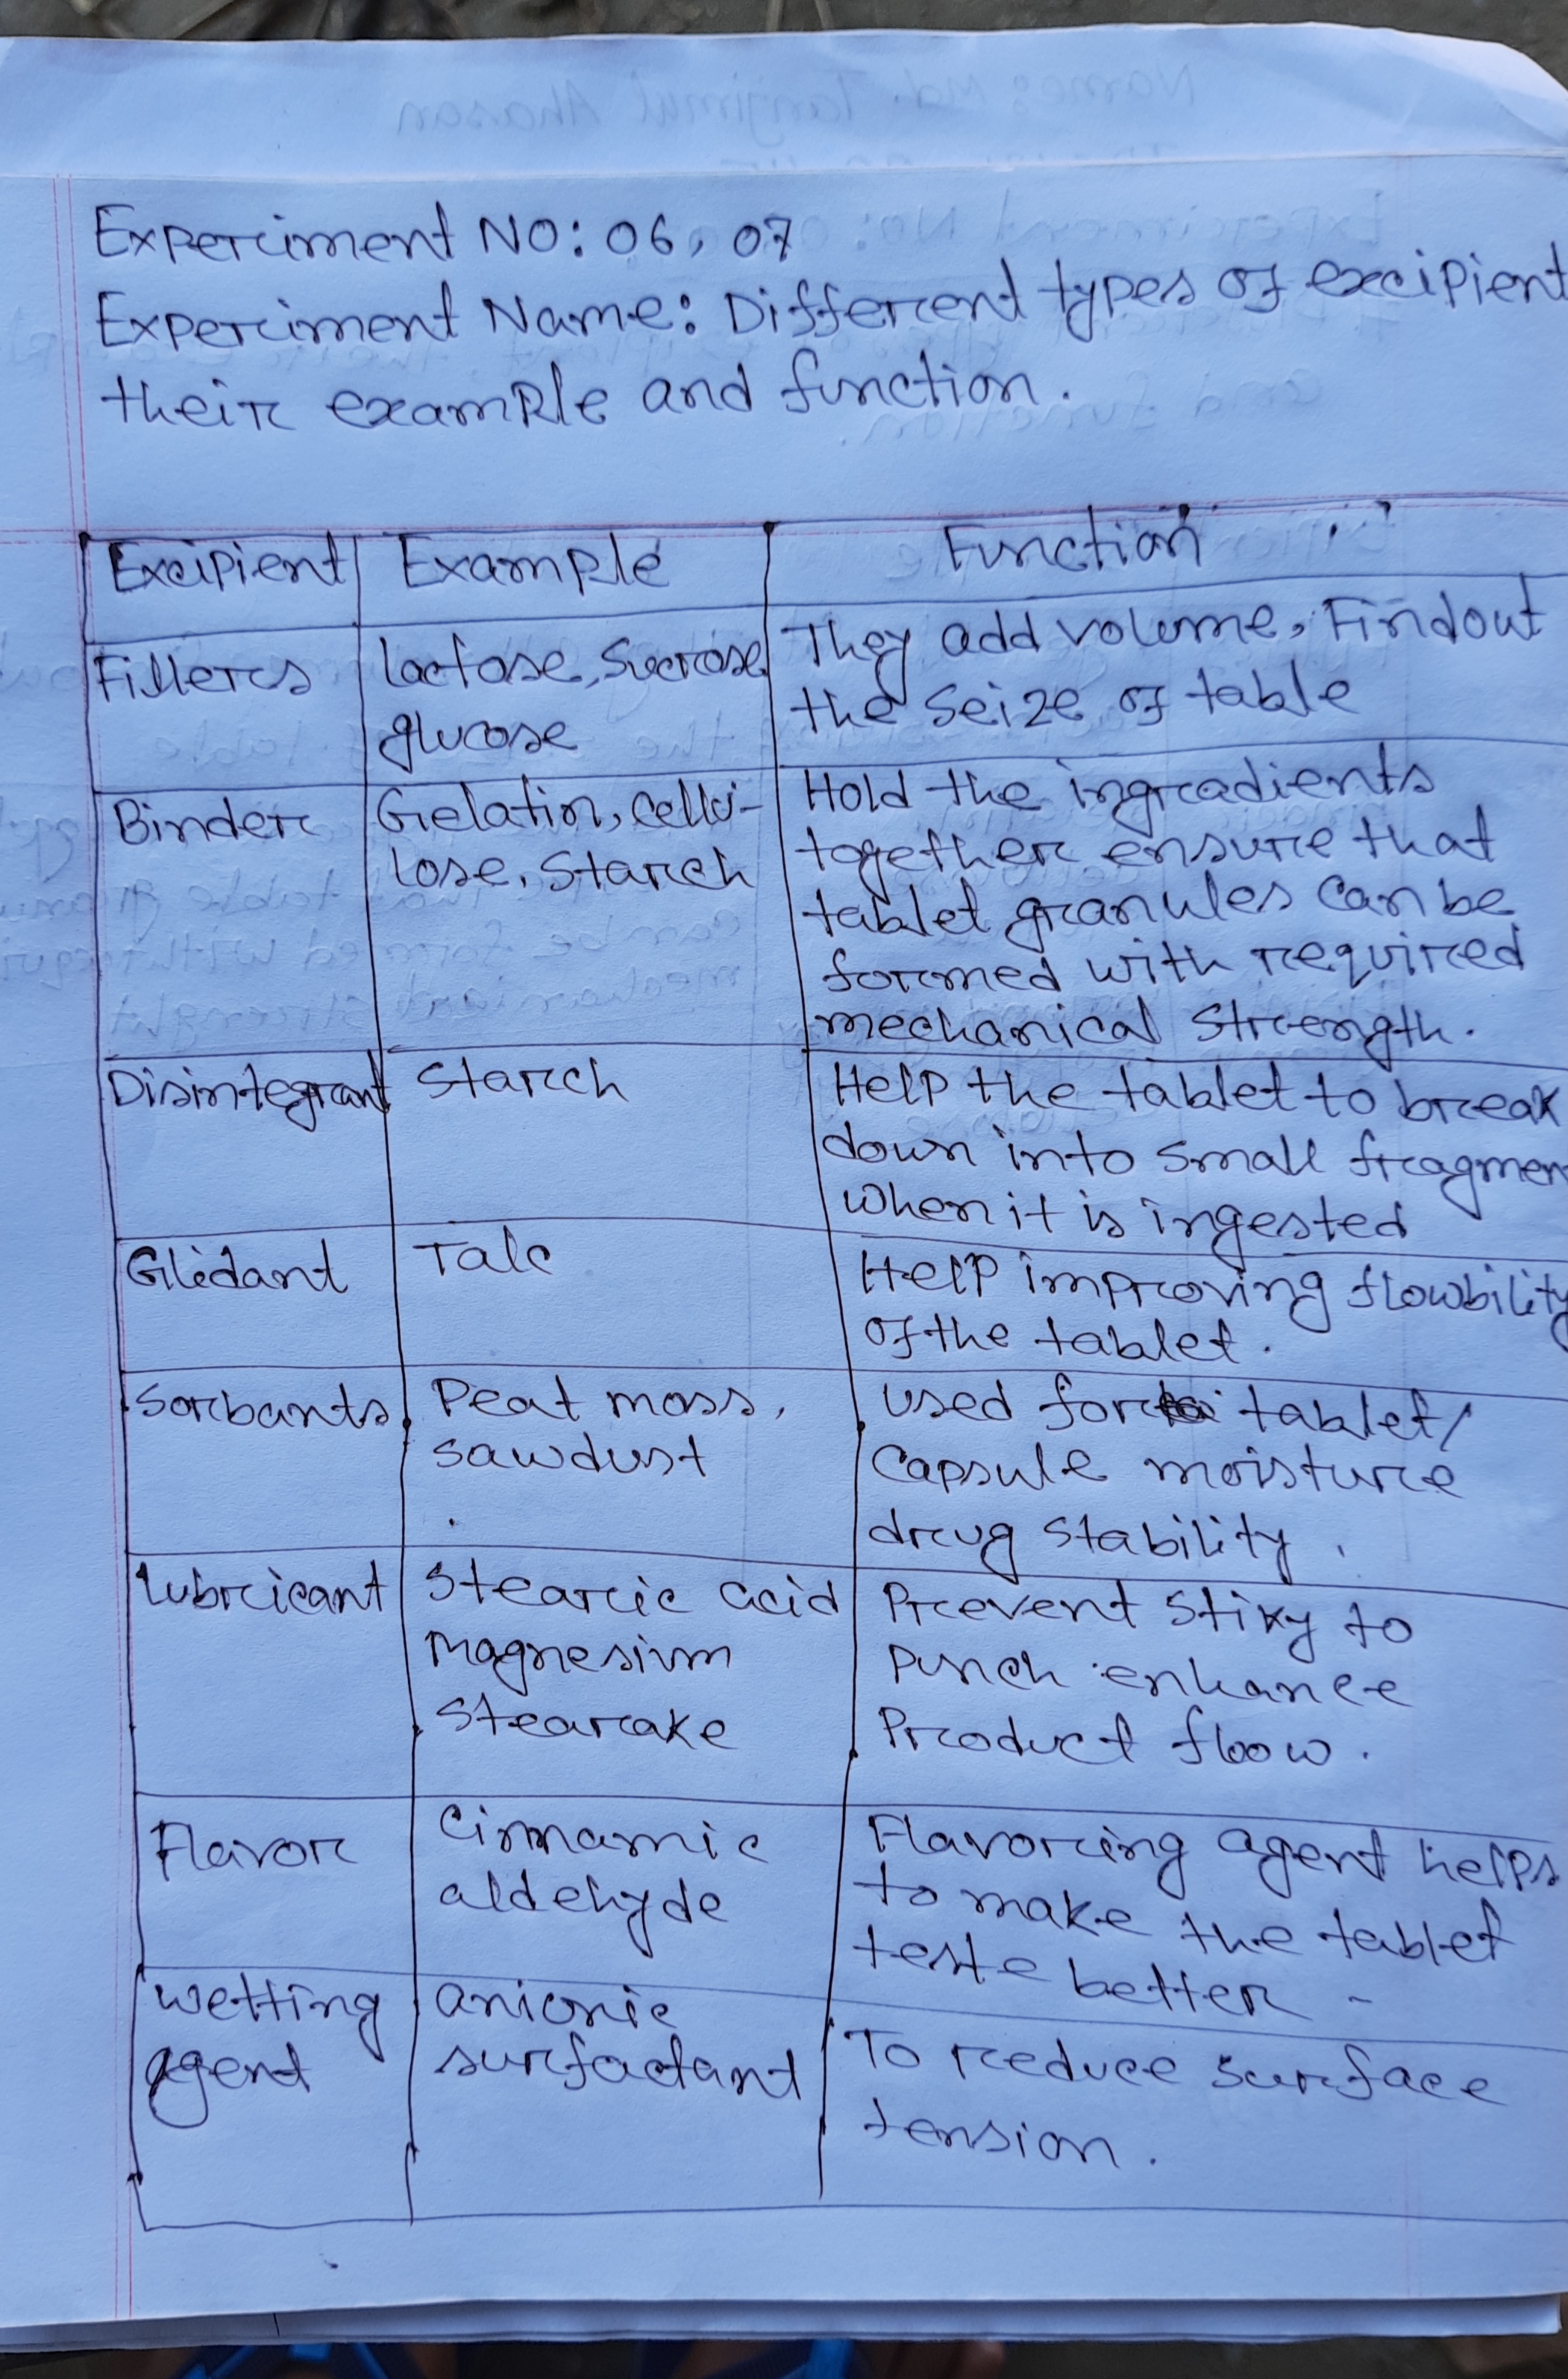 Experiment NO: 06, 07
Experiment Name: Different types of excipient
their example and function.
Excipient Example Function
Fillers
lactose, Sucrose,
glucose
They add volume, Findout
the seize of table
Binder
Gelatin, cellu-
lose, Starch
Hold the ingradients
together ensure that
tablet granules can be
formed with required
mechanical strength.
Disintegrant
Starch
Help the tablet to break
down into small fragmen
when it is ingested
Glidant
Talc
Help improving flowbility
of the tablet.
Sorbants
Peat moss,
sawdust
used for tablet/
capsule moisture
drug stability.
Lubricant
Stearic acid
Magnesium
Stearake
Prevent stiky to
punch enhance
Product floow.
Flavor
Cinnamic
aldehyde
Flavoring agent helps
to make the tablet
teste better -
wetting
agent
anionic
surfactant
To reduce surface
tension.